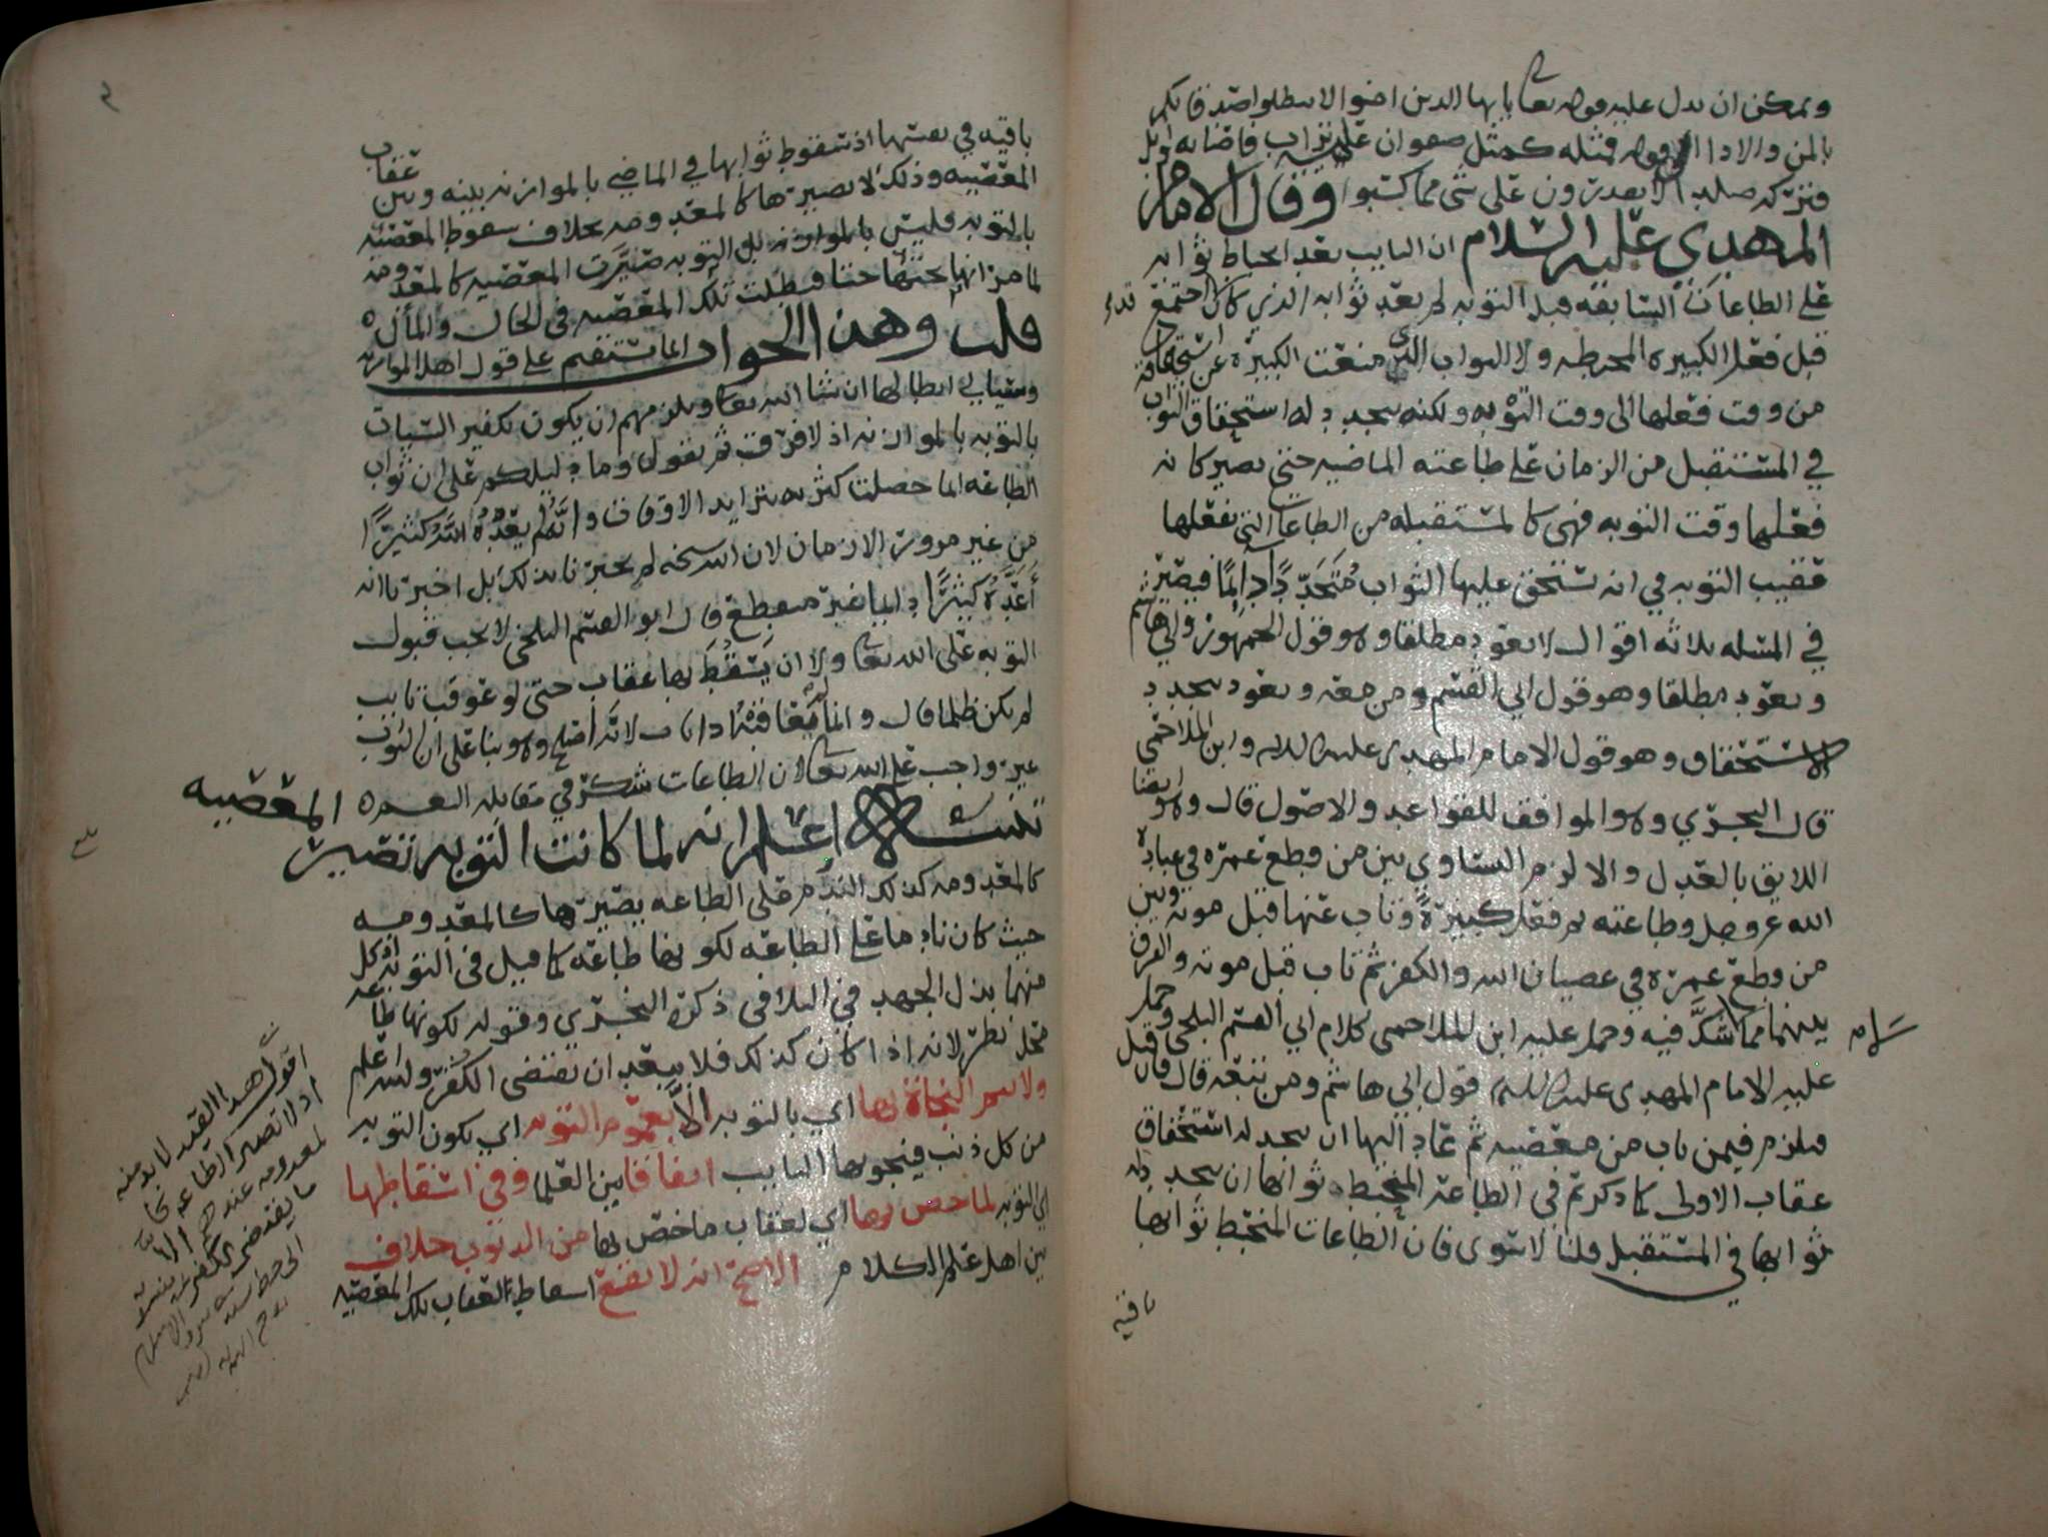 ويمكن ان يدل عليه قوله تعا يا ايها الذين امنوا لا تبطلوا صدقاتكم
بالمن والاذا الى قوله فمثله كمثل صفوان عليه تراب فاصابه وابل
فتركه صلدا لا يقدرون على شي مما كسبوا وقال الامام
المهدي عليه السلام ان التايب بعد احباط ثوابه
على الطاعات السابقه قبل التوبه لم يعد ثوابه الذي كان اجتمع قد
قبل فعل الكبيره المحبطه ولا الثواب الذي منعت الكبيرة عن استحقاقه
من وقت فعلها الى وقت التوبه ولكنه يتجدد له استحقاق الثواب
في المستقبل من الزمان على طاعته الماضيه حتى يصير كانه
فعلها وقت التوبه فهي كالمستقبله من الطاعات التي يفعلها
عقيب التوبه في انه يستحق عليها الثواب متجددًا دايمًا فيصير
في المسئله ثلاثه اقوال لا يعود مطلقا وهو قول الجمهور وابي هاشم
ويعود مطلقا وهو قول ابي القسم ومن معه ويعود بتجدد
الاستحقاق وهو قول الامام المهدي عليه السلام وابن الملاحمي
قال النجري وهو الموافق للقواعد والاصول قال وهو ايضا
اللايق بالعدل والا لزم التساوي بين من قطع عمره في عبادة
الله عز وجل وطاعته ثم فعل كبيرةً وتاب عنها قبل موته وبين
من قطع عمره في عصيان الله والكفر ثم تاب قبل موته والفرق
بينهما مما لا شكَّ فيه وحمل عليه ابن الملاحمي كلام ابي القسم البلخي وحمل
عليه الامام المهدي عليه السلام قول ابي هاشم ومن تبعه قال فان قيل
فيلزم فيمن تاب من معصيه ثم عاد اليها ان يتجدد له استحقاق
عقاب الاولى كما ذكرتم في الطاعة المنحبط ثوابها ان يتجدد له
ثوابها في المستقبل قلنا لا سوى فان الطاعات المنحبط ثوابها
باقيه
باقيه في نفسها اذ سقوط ثوابها في الماضي بالموازنه بينه وبين عقاب
المعصيه وذلك لا يصيرها كالمعدومه بخلاف سقوط المعصيه
بالتوبه فليس بالموازنه بل التوبه صيّرت المعصيه كالمعدومه
لما مر انها تحتها حتا فبطلت تلك المعصيه في الحال والمآل
قلت وهذا الجواب انما يستقيم على قول اهل الموازنه
وسياتي ابطالها ان شا الله تعا ويلزمهم ان يكون تكفير السيئات
بالتوبه بالموازنه اذ لا فرق ثم نقول وما دليلكم على ان ثواب
الطاعه انما حصلت كثرته بتزايد الاوقات وانه لم يعدّه الله كثيرًا
من غير مرور الازمان لان الله سبحنه لم يخبرنا بذلك بل اخبرنا انه
أعدّه كثيرًا دايما غير منقطع قال ابو القسم البلخي لا يجب قبول
التوبه على الله تعا ولا ان يسقط بها عقاب حتى لو عوقب تايب
لم يكن ظلما قال وانما لم يعاقبه اذا تاب لانه أصلح وهو بنا على ان الثواب
غير واجب على الله تعا لان الطاعات شكر في مقابله النعمه
تنبيه اعلم انه لما كانت التوبه تصير المعصيه
كالمعدومه كذلك الندم على الطاعه يصيّرها كالمعدومه
حيث كان نادما على الطاعه لكونها طاعه كما قيل في التوبه اذ كل
منهما بذل الجهد في التلافي ذكره النجري وقوله لكونها طاعه
محل نظر لانه اذا كان كذلك فلا يبعد ان يقتضي الكفر والله اعلم
ولا يتم النجاة بها اي بالتوبه الا بعموم التوبه اي يكون التوبه
من كل ذنب فينجو بها التايب اتفاقا بين العلما وفي اسقاطها
اي التوبه لما خص بها اي لعقاب ما خص بها من الذنوب خلاف
بين اهل علم الكلام الاصح انه لا يقع اسقاط العقاب بتلك المعصيه
اقول هذا القيد لا بد منه
اذ لا تصير الطاعه كا
لمعدومه عندهم الا
ما يقتضي الكفر